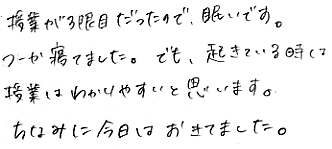 授業が3限目だったので、眠いです。
つーか寝てました。でも、起きている時は
授業はわかりやすいと思います。
ちなみに今日はおきてました。